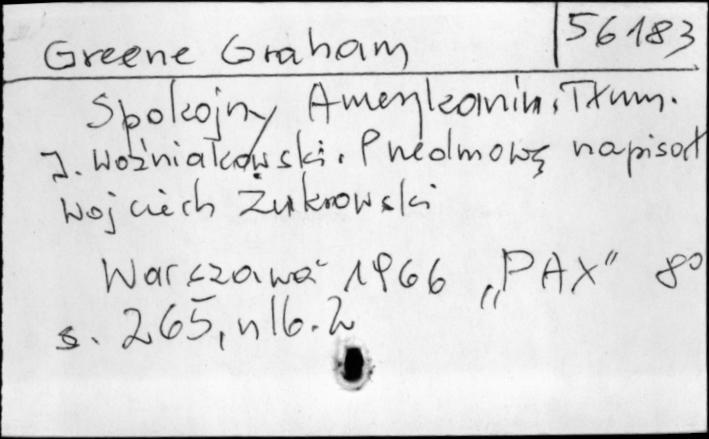 56183
Greene Graham
Spokojny Amerykanin. Tłum.
J. Woźniakowski. Przedmowę napisał
Wojciech Żukrowski
Warszawa 1966 „PAX” 8°
s. 265, nlb. 2